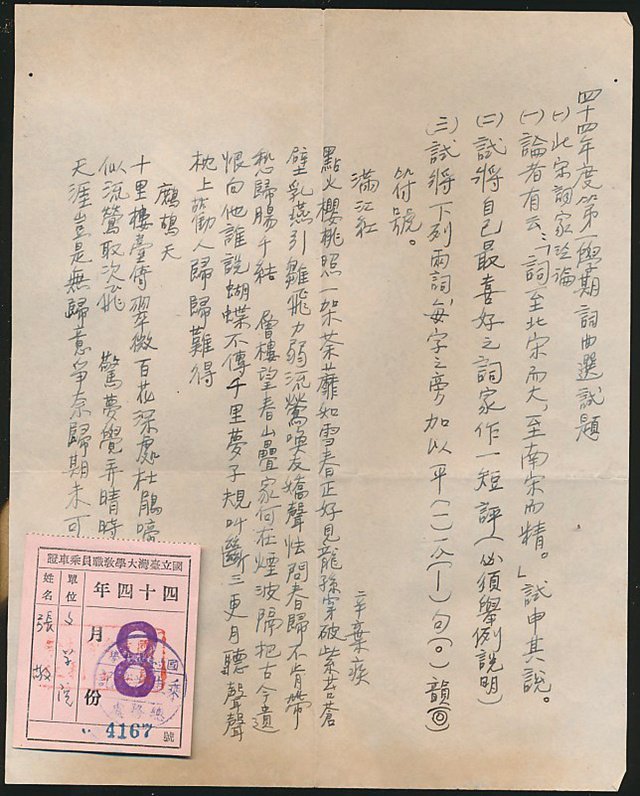 四十四年度第一學期詞曲選試題
㈠此宋詞家論
㈠論者有云：「詞至北宋而大，至南宋而精。」試申其說。
㈡試將自己最喜好之詞家作一短評（必須舉例說明）
㈢試將下列兩詞，每字之旁加以平(一)仄(丨)句(。)韻(◎)
符號。
滿江紅 辛棄疾
點火櫻桃照一架荼蘼如雪春正好見龍孫穿破紫苔蒼
壁乳燕引雛飛力弱流鶯喚友嬌聲怯問春歸不肯帶
愁歸腸千結 層樓望春山疊家何在煙波隔把古今遺
恨向他誰說蝴蝶不傳千里夢子規叫斷三更月聽聲聲
枕上勸人歸歸難得
鷓鴣天
十里樓臺倚翠微百花深處杜鵑啼
似流鶯取次飛 驚夢覺弄晴時
天涯豈是無歸意爭奈歸期未可
國立臺灣大學教職員乘車證
四十四年
8月份
單位 文學院
姓名 張敬
4167號